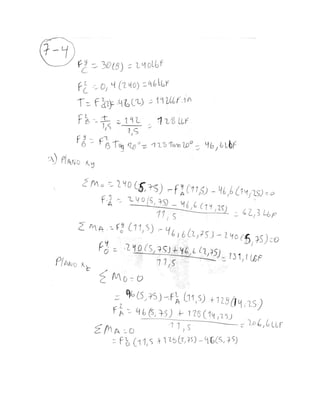 7-4
F^y_C = 30(8) = 240Lbf
F^z_C = 0,4 (240) = 96Lbf
T = F^z_C(2) = 96(2) = 192Lbf.in
F^z_B = T/1,5 = 192/1,5 = 128 Lbf
F^y_B = F^z_B Tg 20° = 128 Tan 20° = 46,6Lbf
a) Plano xy
ΣM_O = 240(5,75) - F^y_A(11,5) - 46,6(14,25) = 0
F^y_A = 240(5,75) - 46,6(14,25) / 11,5 = 62,3 Lbf
ΣM_A = F^y_O(11,5) - 46,6(2,75) - 240(5,75) = 0
F^y_O = 240(5,75) + 46,6(2,75) / 11,5 = 131,1 Lbf
Plano xz
ΣM_O = 0
= 96(5,75) - F^z_A(11,5) + 128(14.25)
F^z_A = 96(5,75) + 128(14,25) / 11,5 = 206,6Lbf
ΣM_A = 0
= F^z_O(11,5 + 128(2,75) - 96(5,75)